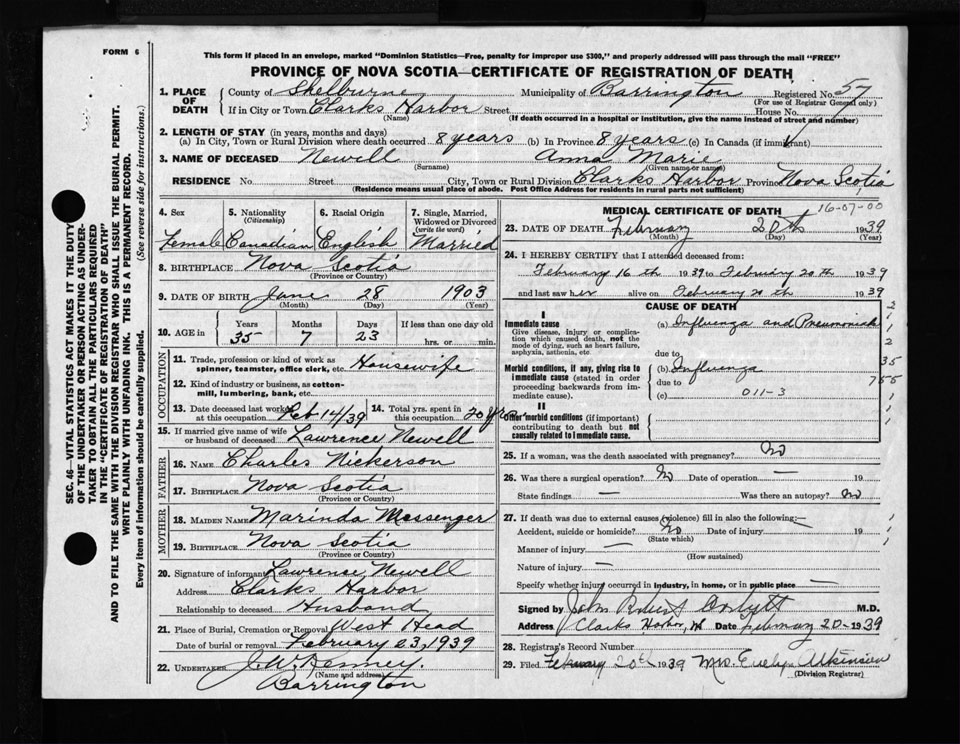 FORM 6
This form if placed in an envelope, marked "Dominion Statistics—Free, penalty for improper use $300," and properly addressed will pass through the mail "FREE"
PROVINCE OF NOVA SCOTIA—CERTIFICATE OF REGISTRATION OF DEATH
1. PLACE OF DEATH
County of Shelburne Municipality of Barrington Registered No. 57
(For use of Registrar General only)
If in City or Town Clarks Harbor Street House No.
(Name) (If death occurred in a hospital or institution, give the name instead of street and number)
2. LENGTH OF STAY (in years, months and days)
(a) In City, Town or Rural Division where death occurred 8 years (b) In Province 8 years (c) In Canada (if immigrant)
3. NAME OF DECEASED Newell Anna Marie
(Surname) (Given name or names)
RESIDENCE No. Street City, Town or Rural Division Clarks Harbor Province Nova Scotia
(Residence means usual place of abode. Post Office Address for residents in rural parts not sufficient)
SEC. 46—VITAL STATISTICS ACT MAKES IT THE DUTY
OF THE UNDERTAKER OR PERSON ACTING AS UNDER-
TAKER TO OBTAIN ALL THE PARTICULARS REQUIRED
IN THE "CERTIFICATE OF REGISTRATION OF DEATH"
AND TO FILE THE SAME WITH THE DIVISION REGISTRAR WHO SHALL ISSUE THE BURIAL PERMIT.
WRITE PLAINLY WITH UNFADING INK. THIS IS A PERMANENT RECORD.
Every item of information should be carefully supplied. (See reverse side for instructions.)
4. Sex
Female
5. Nationality
(Citizenship)
Canadian
6. Racial Origin
English
7. Single, Married,
Widowed or Divorced
(write the word)
Married
8. BIRTHPLACE Nova Scotia
(Province or Country)
9. DATE OF BIRTH June 28 1903
(Month) (Day) (Year)
10. AGE in
Years Months Days If less than one day old
35 7 23 hrs. or min.
OCCUPATION
11. Trade, profession or kind of work as
spinner, teamster, office clerk, etc. Housewife
12. Kind of industry or business, as cotton-
mill, lumbering, bank, etc.
13. Date deceased last worked
at this occupation Feb 14/39
14. Total yrs. spent in
this occupation 20 yrs
15. If married give name of wife
or husband of deceased Lawrence Newell
FATHER
16. NAME Charles Nickerson
17. BIRTHPLACE Nova Scotia
(Province or Country)
MOTHER
18. MAIDEN NAME Marinda Messenger
19. BIRTHPLACE Nova Scotia
(Province or Country)
20. Signature of informant Lawrence Newell
Address Clarks Harbor
Relationship to deceased Husband
21. Place of Burial, Cremation or Removal West Head
Date of burial or removal February 23, 1939
22. UNDERTAKER J. W. Kenney.
(Name and address)
Barrington
MEDICAL CERTIFICATE OF DEATH 16-07-00
23. DATE OF DEATH February 20th 1939
(Month) (Day) (Year)
24. I HEREBY CERTIFY that I attended deceased from:
February 16th 1939 to February 20th 1939
and last saw her alive on February 20th 1939
CAUSE OF DEATH
I
Immediate cause
Give disease, injury or complica-
tion which caused death, not the
mode of dying, such as heart failure,
asphyxia, asthenia, etc.
(a) Influenza and Pneumonia
due to
Morbid conditions, if any, giving rise to
immediate cause (stated in order
proceeding backwards from im-
mediate cause).
(b) Influenza
due to
(c) 011-3
II
Other morbid conditions (if important)
contributing to death but not
causally related to immediate cause.
35
25. If a woman, was the death associated with pregnancy? No
26. Was there a surgical operation? No Date of operation — 19
State findings — Was there an autopsy? No
27. If death was due to external causes (violence) fill in also the following:—
Accident, suicide or homicide? No Date of injury 19
(State which)
Manner of injury —
(How sustained)
Nature of injury —
Specify whether injury occurred in industry, in home, or in public place —
Signed by John Robert M.D.
Address Clarks Harbor, NS Date February 20 - 1939
28. Registrar's Record Number
29. Filed February 20th 1939 Mrs. Evelyn Atkinson
(Division Registrar)